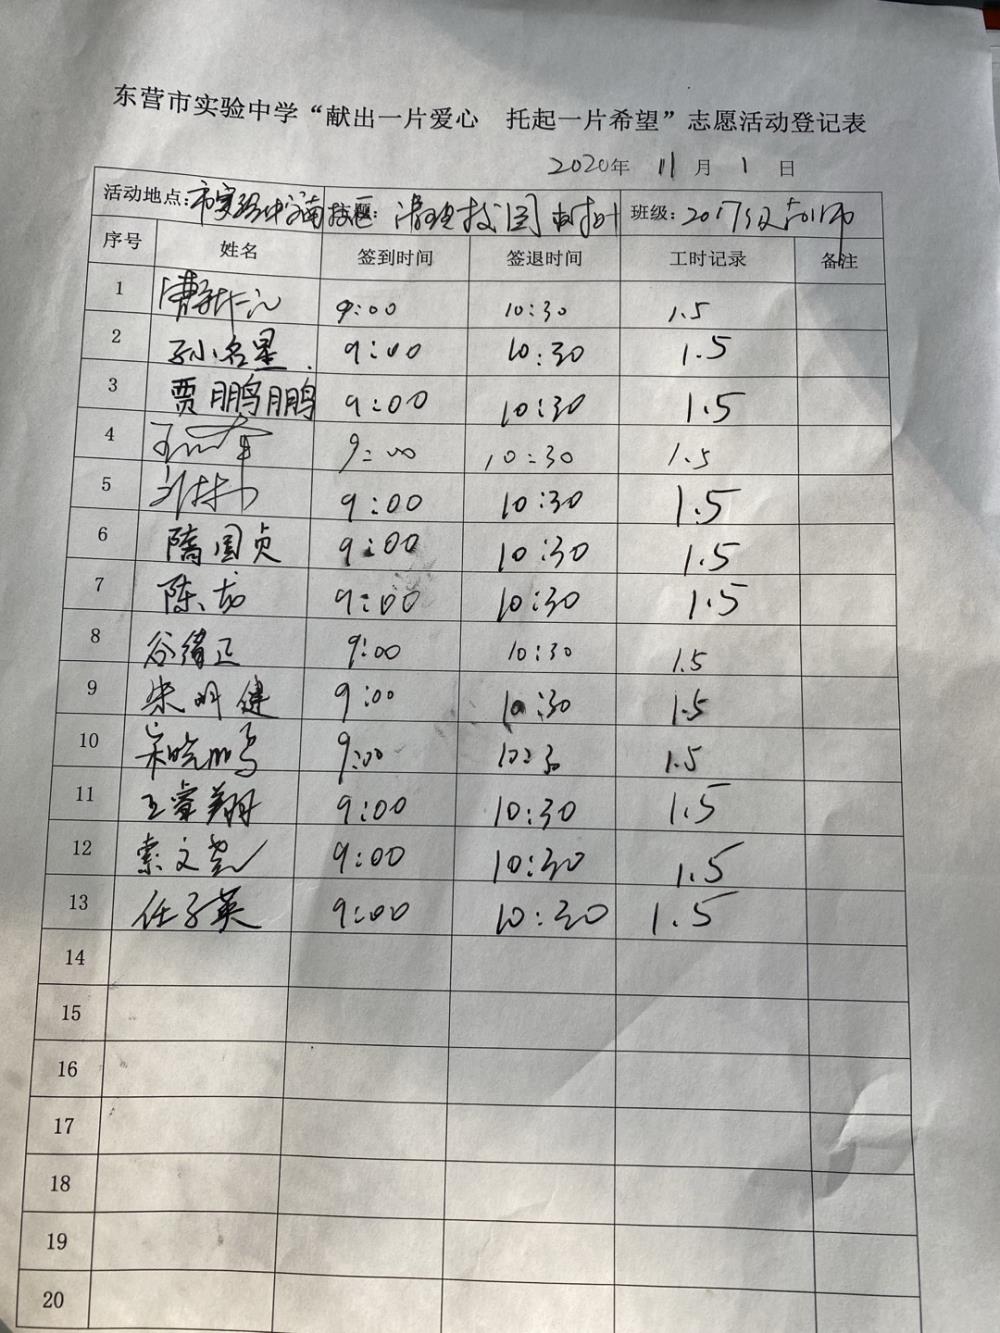 东营市实验中学“献出一片爱心 托起一片希望”志愿活动登记表
2020年 11月 1日
活动地点:市实验中学南校 主题:清理校园 树叶 班级:2017级
序号 姓名 签到时间 签退时间 工时记录 备注
1 9:00 10:30 1.5
2 孙名星 9:00 10:30 1.5
3 贾鹏鹏 9:00 10:30 1.5
4 9:00 10:30 1.5
5 9:00 10:30 1.5
6 隋国贞 9:00 10:30 1.5
7 陈 9:00 10:30 1.5
8 谷绪正 9:00 10:30 1.5
9 宋明健 9:00 10:30 1.5
10 宋晓鹏 9:00 10:30 1.5
11 王睿翔 9:00 10:30 1.5
12 索文尧 9:00 10:30 1.5
13 任子英 9:00 10:30 1.5
14
15
16
17
18
19
20